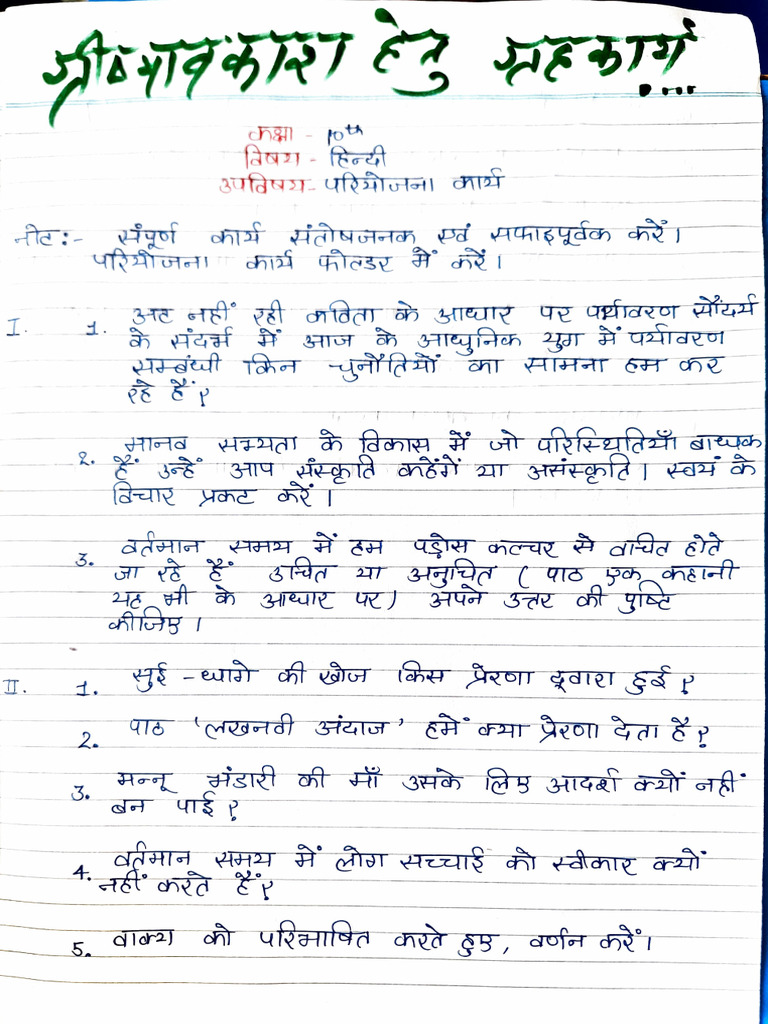 ग्रीष्मावकाश हेतु ग्रहकार्य ....
कक्षा - 10th
विषय - हिन्दी
उपविषय - परियोजना कार्य
नोट :- संपूर्ण कार्य संतोषजनक एवं सफाइपूर्वक करें।
परियोजना कार्य फोल्डर में करें।
I. 1. अट नहीं रही कविता के आधार पर पर्यावरण सौंदर्य
के संदर्भ में आज के आधुनिक युग में पर्यावरण
सम्बंधी किन चुनौतियों का सामना हम कर
रहे हैं?
2. मानव सभ्यता के विकास में जो परिस्थितियाँ बाधक
हैं उन्हें आप संस्कृति कहेंगें या असंस्कृति। स्वयं के
विचार प्रकट करें।
3. वर्तमान समय में हम पड़ोस कल्चर से वंचित होते
जा रहे हैं उचित या अनुचित ( पाठ एक कहानी
यह भी के आधार पर) अपने उत्तर की पुष्टि
कीजिए।
II. 1. सुई - धागे की खोज किस प्रेरणा द्वारा हुई?
2. पाठ 'लखनवी अंदाज' हमें क्या प्रेरणा देता है?
3. मन्नू भंडारी की माँ उसके लिए आदर्श क्यों नहीं
बन पाई?
4. वर्तमान समय में लोग सच्चाई को स्वीकार क्यों
नहीं करते हैं?
5. वाक्य को परिभाषित करते हुए, वर्णन करें।